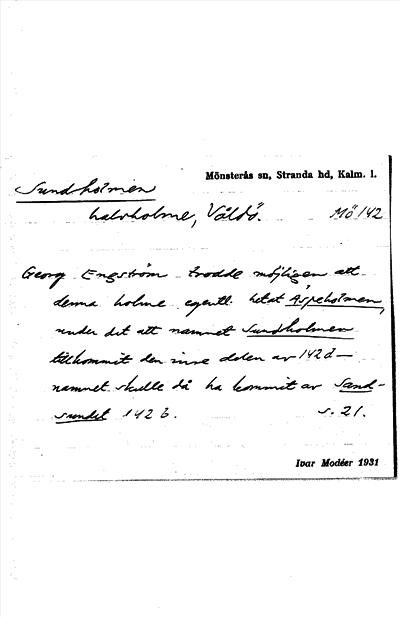 Mönsterås sn, Stranda hd, Kalm. l.
Sundholmen
halvholme, Våldö. Mö 142
Georg Engström trodde möjligen att
denna holme egentl. hetat Aspeholmen,
under det att namnet Sundholmen
tillkommit den inre delen av 142d —
namnet skulle då ha kommit av Sand-
sundet 142 b. s. 21.
Ivar Modéer 1931